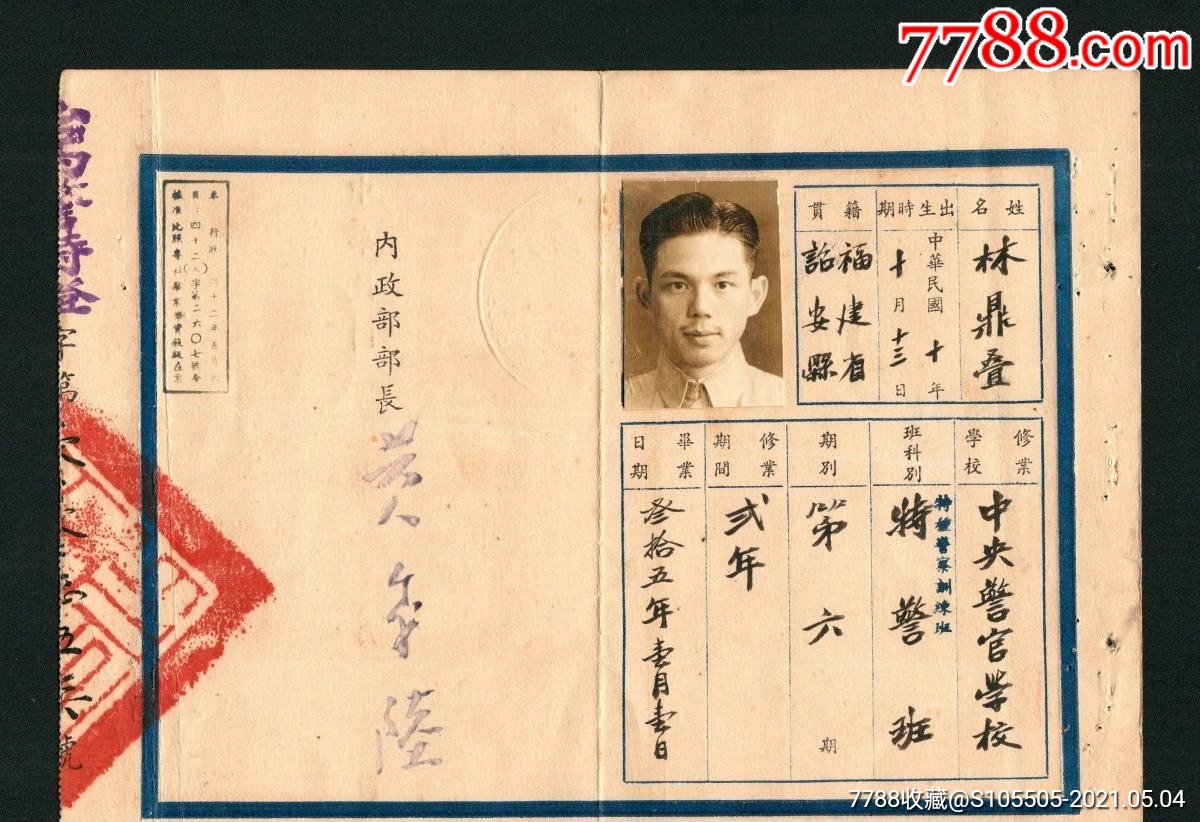 7788.com
姓名
林鼎叠
出生時期
中華民國十年
十月十三日
籍貫
福建省
詔安縣
修業學校
中央警官學校
班科別
特種警察訓練班
特警班
期別
第六期
修業期間
弍年
畢業日期
叁拾五年壹月壹日
內政部部長
奉行政
字第二六〇七號令
核准比照專科畢業學資敘級在案
字第
五六號
7788收藏@S105505-2021.05.04